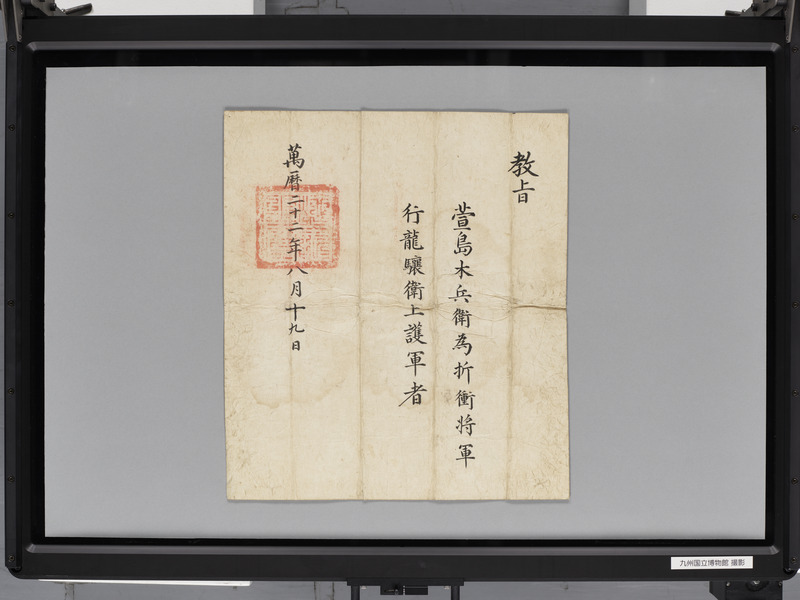 教旨
萱島木兵衛為折衝将軍
行龍驤衛上護軍者
萬曆二十二年八月十九日
九州国立博物館 撮影